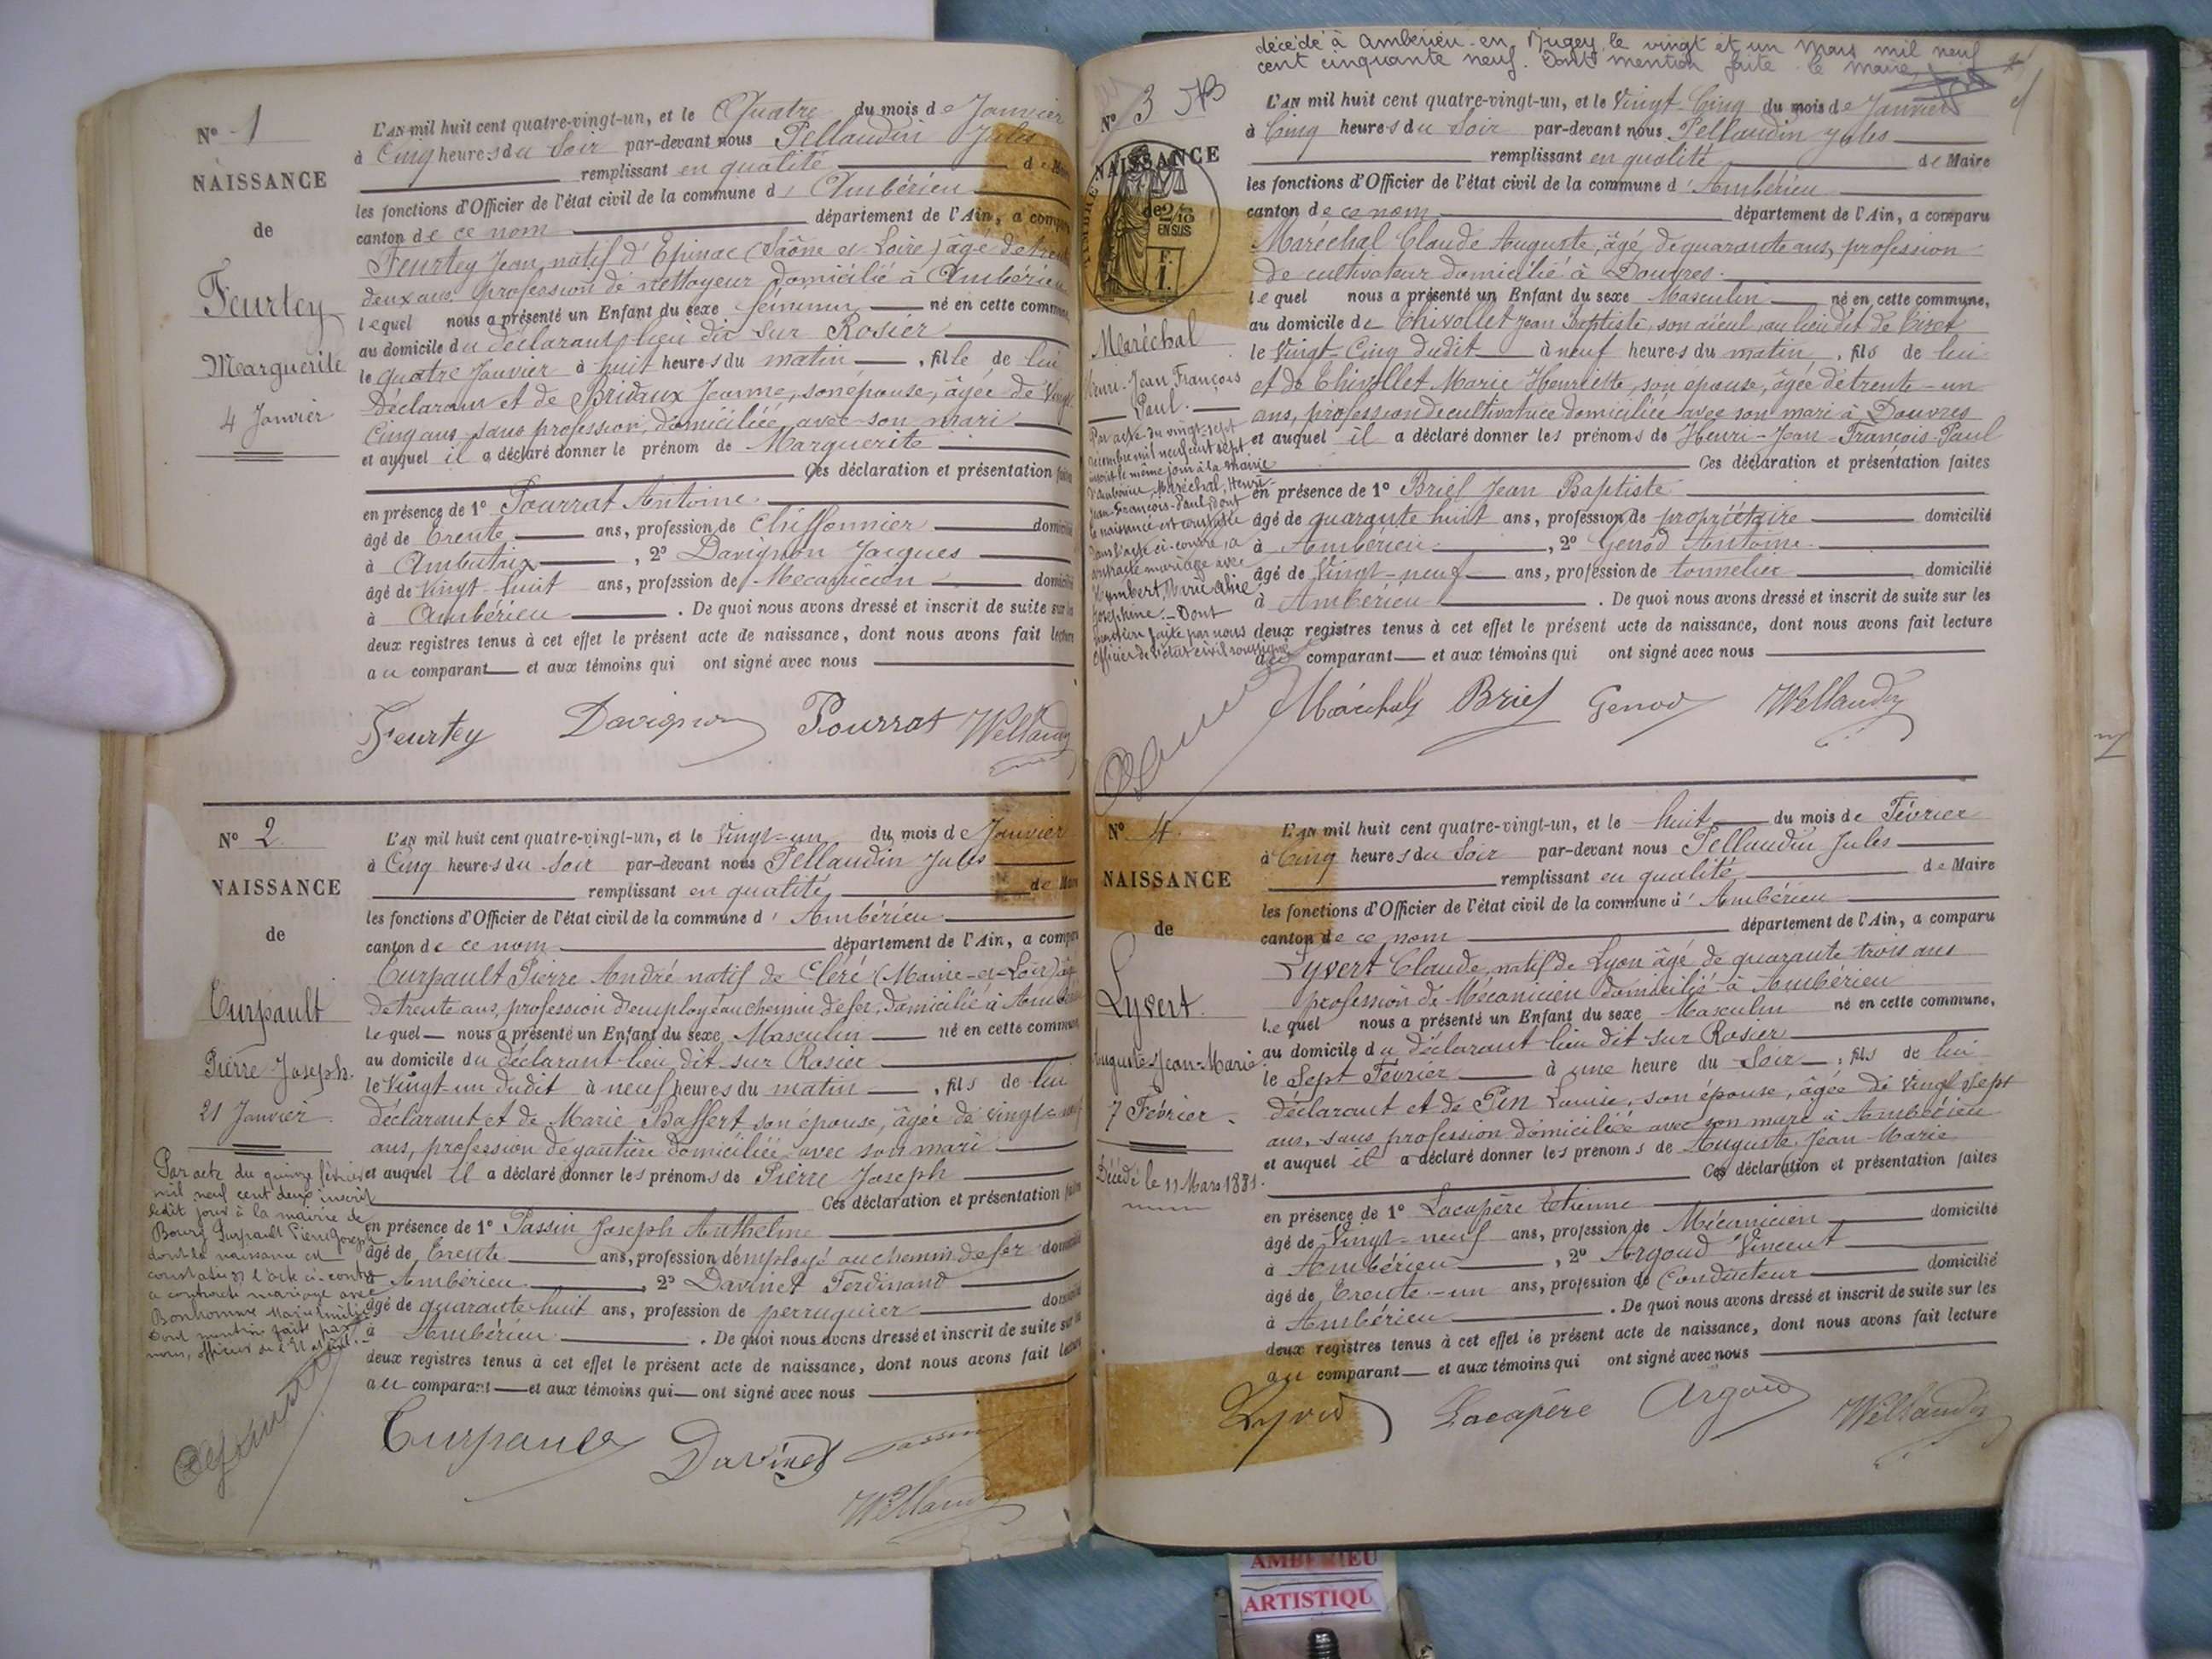 N° 1
NAISSANCE
de
Feurtey
Marguerite
4 Janvier
L'AN mil huit cent quatre-vingt-un, et le Quatre du mois de Janvier
à Cinq heures du Soir par-devant nous Pellaudin Jules
remplissant en qualité de Maire
les fonctions d'Officier de l'état civil de la commune d'Ambérieu
canton de ce nom département de l'Ain, a comparu
Feurtey Jean, natif d'Epinac (Saône et Loire) âgé de trente
deux ans profession de nettoyeur domicilié à Ambérieu
lequel nous a présenté un Enfant du sexe féminin né en cette commune,
au domicile du déclarant lieu dit sur Rosier
le quatre Janvier à huit heures du matin, fille de lui
déclarant et de Bridaux Jeanne, son épouse, âgée de Vingt
Cinq ans sans profession, domiciliée avec son mari
et auquel il a déclaré donner le prénom de Marguerite
Ces déclaration et présentation faites
en présence de 1° Pourrat Antoine
âgé de trente ans, profession de Chiffonnier domicilié
à Ambutrix, 2° Davignon Jacques
âgé de Vingt-huit ans, profession de Mécanicien domicilié
à Ambérieu. De quoi nous avons dressé et inscrit de suite sur les
deux registres tenus à cet effet le présent acte de naissance, dont nous avons fait lecture
au comparant et aux témoins qui ont signé avec nous
Feurtey Davignon Pourrat
N° 2
NAISSANCE
de
Turpault
Pierre Joseph
21 Janvier
Par acte du quinze février
mil neuf cent deux inscrit
ledit jour à la mairie de
Bourg Turpault Pierre Joseph
dont la naissance est
constatée en l'acte ci-contre
a contracté mariage avec
Bonhomme
dont mention faite par
nous, officier de l'Etat civil.
L'AN mil huit cent quatre-vingt-un, et le Vingt-un du mois de Janvier
à Cinq heures du Soir par-devant nous Pellaudin Jules
remplissant en qualité de Maire
les fonctions d'Officier de l'état civil de la commune d'Ambérieu
canton de ce nom département de l'Ain, a comparu
Turpault Pierre André natif de Cléré (Maine-et-Loire) âgé
de trente ans, profession d'employé au chemin de fer, domicilié à Ambérieu
lequel nous a présenté un Enfant du sexe Masculin né en cette commune,
au domicile du déclarant lieu dit sur Rosier
le Vingt-un dudit à neuf heures du matin, fils de lui
déclarant et de Marie Baffert son épouse, âgée de vingt-neuf
ans, profession de gantière domiciliée avec son mari
et auquel il a déclaré donner les prénoms de Pierre Joseph
Ces déclaration et présentation faites
en présence de 1° Passin Joseph Anthelme
âgé de trente ans, profession d'employé au chemin de fer domicilié
à Ambérieu, 2° Davinet Ferdinand
âgé de quarante huit ans, profession de perruquier domicilié
à Ambérieu. De quoi nous avons dressé et inscrit de suite sur les
deux registres tenus à cet effet le présent acte de naissance, dont nous avons fait lecture
au comparant et aux témoins qui ont signé avec nous
Turpault Davinet Passin
décédé à Ambérieu-en-Bugey le vingt et un Mars mil neuf
cent cinquante neuf. Dont mention faite le Maire
N° 3
NAISSANCE
de
2/10
EN SUS
F.
1.
Maréchal
Henri-Jean François
Paul.
Par acte du vingt-sept
décembre mil neuf cent sept
inscrit le même jour à la Mairie
d'Ambérieu, Maréchal, Henri-
Jean-François-Paul, dont
la naissance est constatée
dans l'acte ci-contre, a
contracté mariage avec
Humbert, Marie
Joséphine. Dont
mention faite par nous
officier de l'état civil soussigné
L'AN mil huit cent quatre-vingt-un, et le Vingt-Cinq du mois de Janvier
à Cinq heures du Soir par-devant nous Pellaudin Jules
remplissant en qualité de Maire
les fonctions d'Officier de l'état civil de la commune d'Ambérieu
canton de ce nom département de l'Ain, a comparu
Maréchal Claude Auguste, âgé de quarante ans, profession
de cultivateur domicilié à Douvres
lequel nous a présenté un Enfant du sexe Masculin né en cette commune,
au domicile de Chivollet Jean Baptiste, son aïeul, au lieu dit de Tiret
le Vingt-Cinq dudit à neuf heures du matin, fils de lui
et de Chivollet Marie Henriette, son épouse, âgée de trente-un
ans, profession de cultivatrice domiciliée avec son mari à Douvres
et auquel il a déclaré donner les prénoms de Henri-Jean-François-Paul
Ces déclaration et présentation faites
en présence de 1° Briel Jean Baptiste
âgé de quarante huit ans, profession de propriétaire domicilié
à Ambérieu, 2° Genod Antoine
âgé de Vingt-neuf ans, profession de tonnelier domicilié
à Ambérieu. De quoi nous avons dressé et inscrit de suite sur les
deux registres tenus à cet effet le présent acte de naissance, dont nous avons fait lecture
au comparant et aux témoins qui ont signé avec nous
Maréchal Briel Genod
N° 4
NAISSANCE
de
Lyvert
Auguste-Jean-Marie
7 Février
Décédé le 11 Mars 1881.
L'AN mil huit cent quatre-vingt-un, et le huit du mois de Février
à Cinq heures du Soir par-devant nous Pellaudin Jules
remplissant en qualité de Maire
les fonctions d'Officier de l'état civil de la commune d'Ambérieu
canton de ce nom département de l'Ain, a comparu
Lyvert Claude, natif de Lyon âgé de quarante trois ans
profession de Mécanicien domicilié à Ambérieu
lequel nous a présenté un Enfant du sexe Masculin né en cette commune,
au domicile du déclarant lieu dit sur Rosier
le Sept Février à une heure du Soir, fils de lui
déclarant et de Pin Louise, son épouse, âgée de vingt sept
ans, sans profession domiciliée avec son mari à Ambérieu
et auquel il a déclaré donner les prénoms de Auguste Jean Marie
Ces déclaration et présentation faites
en présence de 1° Lacapère Etienne
âgé de Vingt-neuf ans, profession de Mécanicien domicilié
à Ambérieu, 2° Argoud Vincent
âgé de Trente-un ans, profession de Conducteur domicilié
à Ambérieu. De quoi nous avons dressé et inscrit de suite sur les
deux registres tenus à cet effet le présent acte de naissance, dont nous avons fait lecture
au comparant et aux témoins qui ont signé avec nous
Lacapère Argoud
AMBERIEU
ARTISTIQU